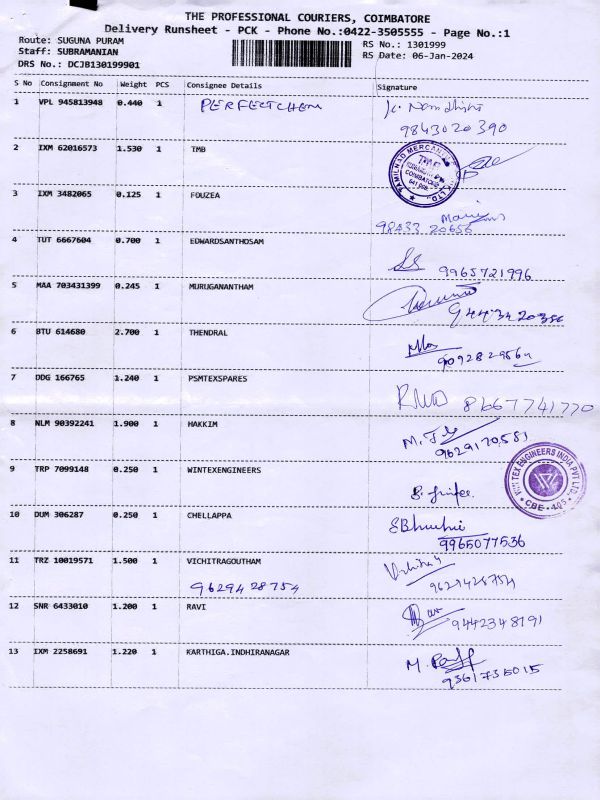 THE PROFESSIONAL COURIERS, COIMBATORE
Delivery Runsheet - PCK - Phone No.:0422-3505555 - Page No.:1
Route: SUGUNA PURAM
Staff: SUBRAMANIAN
DRS No.: DCJB130199901
RS No.: 1301999
RS Date: 06-Jan-2024
S No Consignment No Weight PCS Consignee Details Signature
1 VPL 945813948 0.440 1 PERFECTCHEM
9843020390
2 IXM 62016573 1.530 1 TMB
TAMILNAD MERCANTILE
COIMBATORE
3 IXM 3482065 0.125 1 FOUZEA
98433 20656
4 TUT 6667604 0.700 1 EDWARDSANTHOSAM
9965721996
5 MAA 703431399 0.245 1 MURUGANANTHAM
9443420386
6 BTU 614680 2.700 1 THENDRAL
7 DDG 166765 1.240 1 PSMTEXSPARES
8667741770
8 NLM 90392241 1.900 1 HAKKIM
9629170581
9 TRP 7099148 0.250 1 WINTEXENGINEERS
TEX ENGINEERS INDIA PVT LTD.
CBE - 405
10 DUM 306287 0.250 1 CHELLAPPA
9965077536
11 TRZ 10019571 1.500 1 VICHITRAGOUTHAM
9629428754
12 SNR 6433010 1.200 1 RAVI
9442348191
13 IXM 2258691 1.220 1 KARTHIGA.INDHIRANAGAR
9361735015